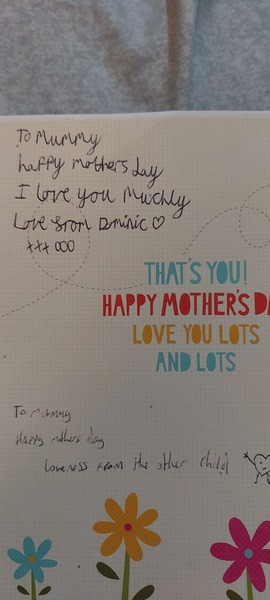 To Mummy
happy mothers day
I love you Muchly
Love from Dominic ♡
xxx ooo
THAT'S YOU!
HAPPY MOTHER'S DA
LOVE YOU LOTS
AND LOTS
To mummy
Happy mothers day
from the other child